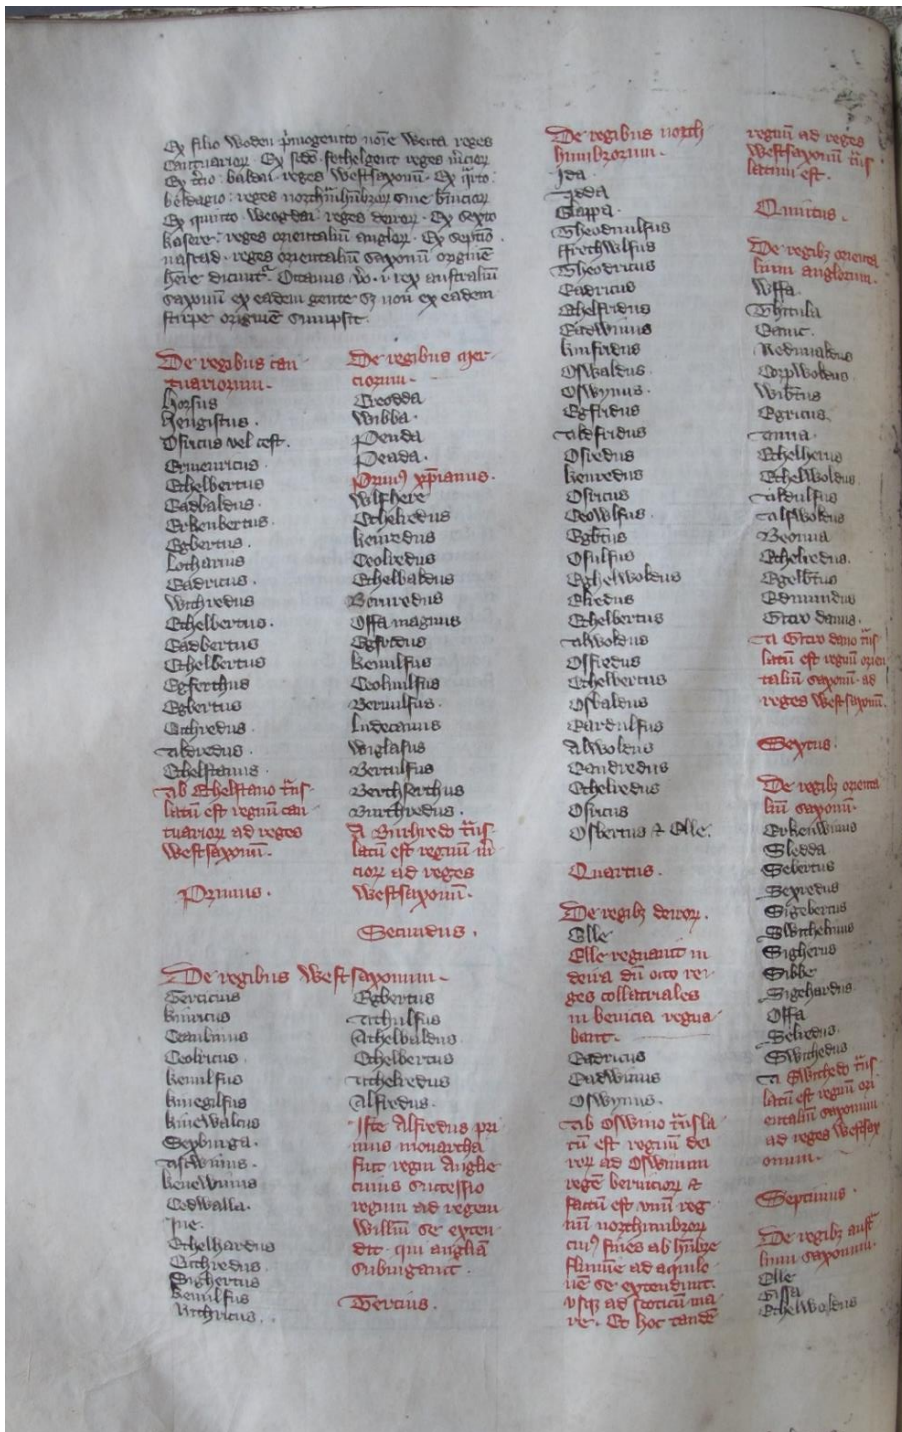 Ex filio Woden p̓mogenito noīe Wecta reges
cantuarioꝝ. Ex sc̄do fethelgent reges m̓cioꝝ
Ex t̓cio baldai reges Westsaxonū. Ex q̓rto
beldagio: reges northanhūbroꝝ siue b̓nicioꝝ
Ex quinto Weogdai reges deiroꝝ. Ex sexto
kasere: reges orientaliū angloꝝ. Ex septīo
nastad. reges orientaliū saxonū originē
h̓ere dicunt̓. Octauus v̓o. rex australiū
saxonū ex eadem gente sꝫ non ex eadem
stirpe originē sumpsit.
De regibus can
tuariorum.
Horsus
Hengistus.
Osricus vel cest.
Ermenricus.
Ethelbertus
Eadbaldus.
Erkenbertus.
Egbertus.
Lotharius
Eadricus.
Withredus
Ethelbertus.
Eadbertus
Ethelbertus
Egferthus
Egbertus
Ethredus
Aldredus.
Ethelstanus.
Ab Ethelstano t̄ns
latū est regnū can
tuarioꝝ ad reges
Westsaxonū.
Primus.
De regibus mer
ciorum.
Creodda
Wibba.
Penda
Peada.
Primꝰ xp̄ianus.
Wlfhere
Ethelredus
kenredus
Ceolredus
Ethelbaldus
Bernredus
Offa magnus
Egfridus
kenulfus
Ceolwulfus
Bernulfus.
Ludecanus
Wiglafus
Bertulfus
Berthferthus
Burthredus.
A Burthredo t̄ns
latū est regnū m̓
cioꝝ ad reges
Westsaxonū.
Secundus.
De regibus Westsaxonum.
Cercicus
kinricus
Ceaulinus
Ceolricus.
kenulfus
kinegilfus
kinewalcus
Sexburga.
Ascwinus.
kenewinus
Cedwalla.
Ine.
Ethelhardus
Cuthredus.
Sighertus
kenulfus
Brithricus.
Egbertus
Athulfus
Ethelbaldus
Ethelbertus
Athelredus
Alfredus.
Iste Alfredus pri
mus monarcha
fuit regni Anglie
cuius successio
regum ad regem
Willm̄ se exten
dit. qui angliā
subiugauit.
Tercius.
De regibus north
humbrorum.
Ida.
Adda
Glappa.
Theodwulfus
ffrethwlfus
Theodricus
Eadricus
Ethelfridus
Eadwinus
kinfridus
Oswaldus
Oswynus.
Egfridus
Aldfridus
Osredus
kenredus
Osricus
Ceowlfus.
Egb̄tus
Osulfus
Eghelwoldus
Elredus
Ethelbertus
Alwoldus
Osfredus
Ethelbertus
Osbaldus
Eardulfus
Alwoldus
Eandredus
Ethelredus
Osricus
Osbertus ⁊ Elle.
Quartus.
De regibꝫ deiroꝝ.
Elle
Elle regnauit in
deira dū octo re
ges collat̓ales
in benicia regna
bant.
Eadricus
Eadwinus
Oswynus.
Ab Oswino t̄nsla
tū est regnū dei
roꝝ ad Oswinum
regē bernicioꝝ ⁊
factū est vnū reg
nū northimbroꝝ
ciuꝰ fines ab hūbre
flumīe ad aquilo
nē se extendunt.
vsqꝫ ad scoticū ma
re. Et hoc tandē
regnū ad reges
westsaxonū t̄ns
latum est.
Quintus.
De regibꝫ orienta
lium anglorum.
Wffa.
Thitula
Eanic.
Redwaldus
Corpwoldus
Wib̄tus
Egricus
Anna.
Ethelherus
Ethelwoldus
Aldulfus
Alfwoldus
Beonna
Ethelredus.
Egelb̄tus
Edmundus
Gitro danus.
A Gitro dano t̄ns
latū est regnū orien
taliū saxonū. ad
reges Westsaxonū.
Sextus.
De regibꝫ orienta
liū saxonū.
Erkenwinus
Sledda
Sebertus
Sexredus
Sigebertus
Swithelmus
Sigherus
Sibbe
Sigehardus
Offa
Selredus.
Swithedus
A Swithedo t̄ns
latū est regnū ori
entaliū saxonum
ad reges westsax
onum.
Septimus.
De regibꝫ aust̓
lium saxonum.
Elle
Cissa
Ethelwoldus